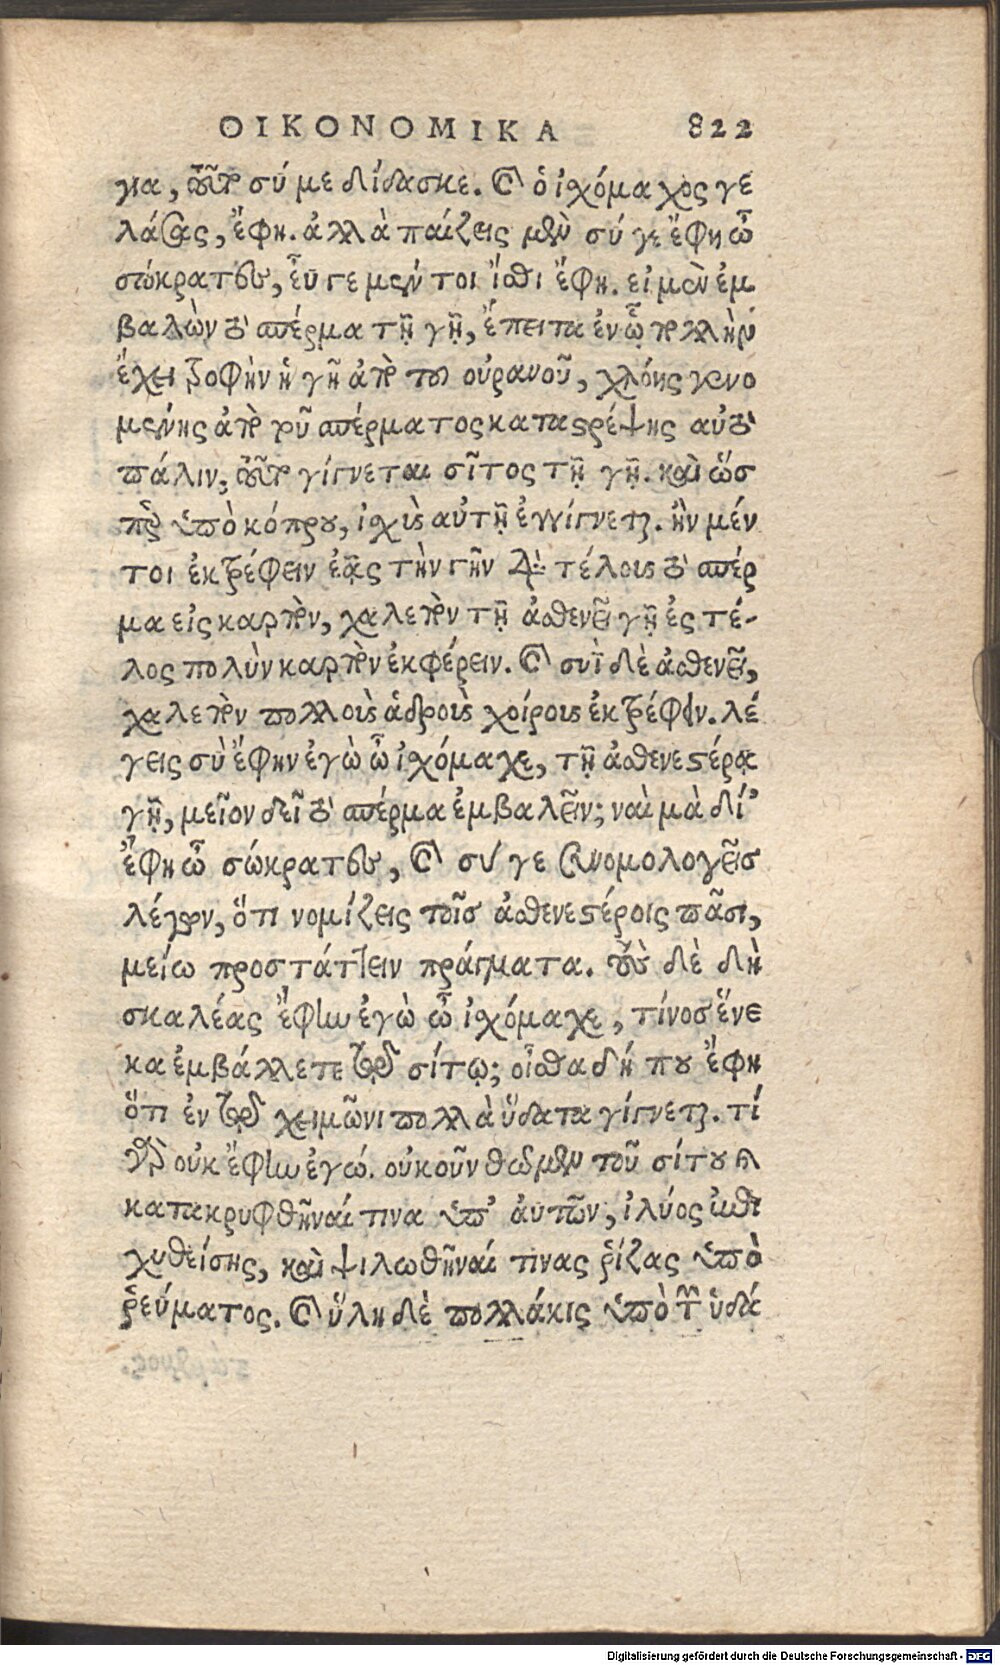 ΟΙΚΟΝΟΜΙΚΑ 822
για, τοῦτο σύ με δίδασκε. καὶ ὁ ἰχόμαχος γε
λάσας, ἔφη. ἀλλὰ παίζεις μὲν σύ γε ἔφη ὦ
σώκρατες, εὖ γε μέν τοι ἴσθι ἔφη. εἰ μὲν ἐμ
βαλὼν τὸ σπέρμα τῇ γῇ, ἔπειτα ἐν ᾧ πολλὴν
ἔχει τροφὴν ἡ γῆ ἀπὸ του οὐρανοῦ, χλόης γενο
μένης ἀπὸ τοῦ σπέρματος καταστρέψης αὐτὸ
πάλιν, τοῦτο γίγνεται σῖτος τῇ γῇ. καὶ ὥσ
περ ὑπὸ κόπρου, ἰχὺς αὐτῇ ἐγγίγνεται. ἢν μέν
τοι ἐκτρέφειν ἐᾷς τὴν γῆν διὰ τέλους τὸ σπέρ
μα εἰς καρπὸν, χαλεπὸν τῇ ἀσθενεῖ γῇ ἐς τέ-
λος πολὺν καρπὸν ἐκφέρειν. καὶ συῒ δὲ ἀσθενεῖ,
χαλεπὸν πολλοὺς ἁδροὺς χοίρους ἐκτρέφειν. λέ
γεις σὺ ἔφην ἐγὼ ὦ ἰχόμαχε, τῇ ἀσθενεστέρᾳ
γῇ, μεῖον δεῖ τὸ σπέρμα ἐμβαλεῖν; ναὶ μὰ δί'
ἔφη ὦ σώκρατες, καὶ σύ γε συνομολογεῖς
λέγων, ὅτι νομίζεις τοῖς ἀσθενεστέροις πᾶσι,
μείω προστάττειν πράγματα. τοὺς δὲ δὴ
σκαλέας ἔφην ἐγὼ ὦ ἰχόμαχε, τίνος ἕνε
κα ἐμβάλλετε τῷ σίτῳ; οἶσθα δή που ἔφη
ὅτι ἐν τῷ χειμῶνι πολλὰ ὕδατα γίγνεται. τί
γὰρ οὐκ ἔφην ἐγώ. οὐκοῦν θῶμεν τοῦ σίτου καὶ
κατακρυφθῆναί τινα ὑπ' αὐτῶν, ἰλύος ἐπι
χυθείσης, καὶ ψιλωθῆναί τινας ῥίζας ὑπὸ
ῥεύματος. καὶ ὕλη δὲ πολλάκις ὑπὸ τῶν ὑδά
Digitalisierung gefördert durch die Deutsche Forschungsgemeinschaft - DFG